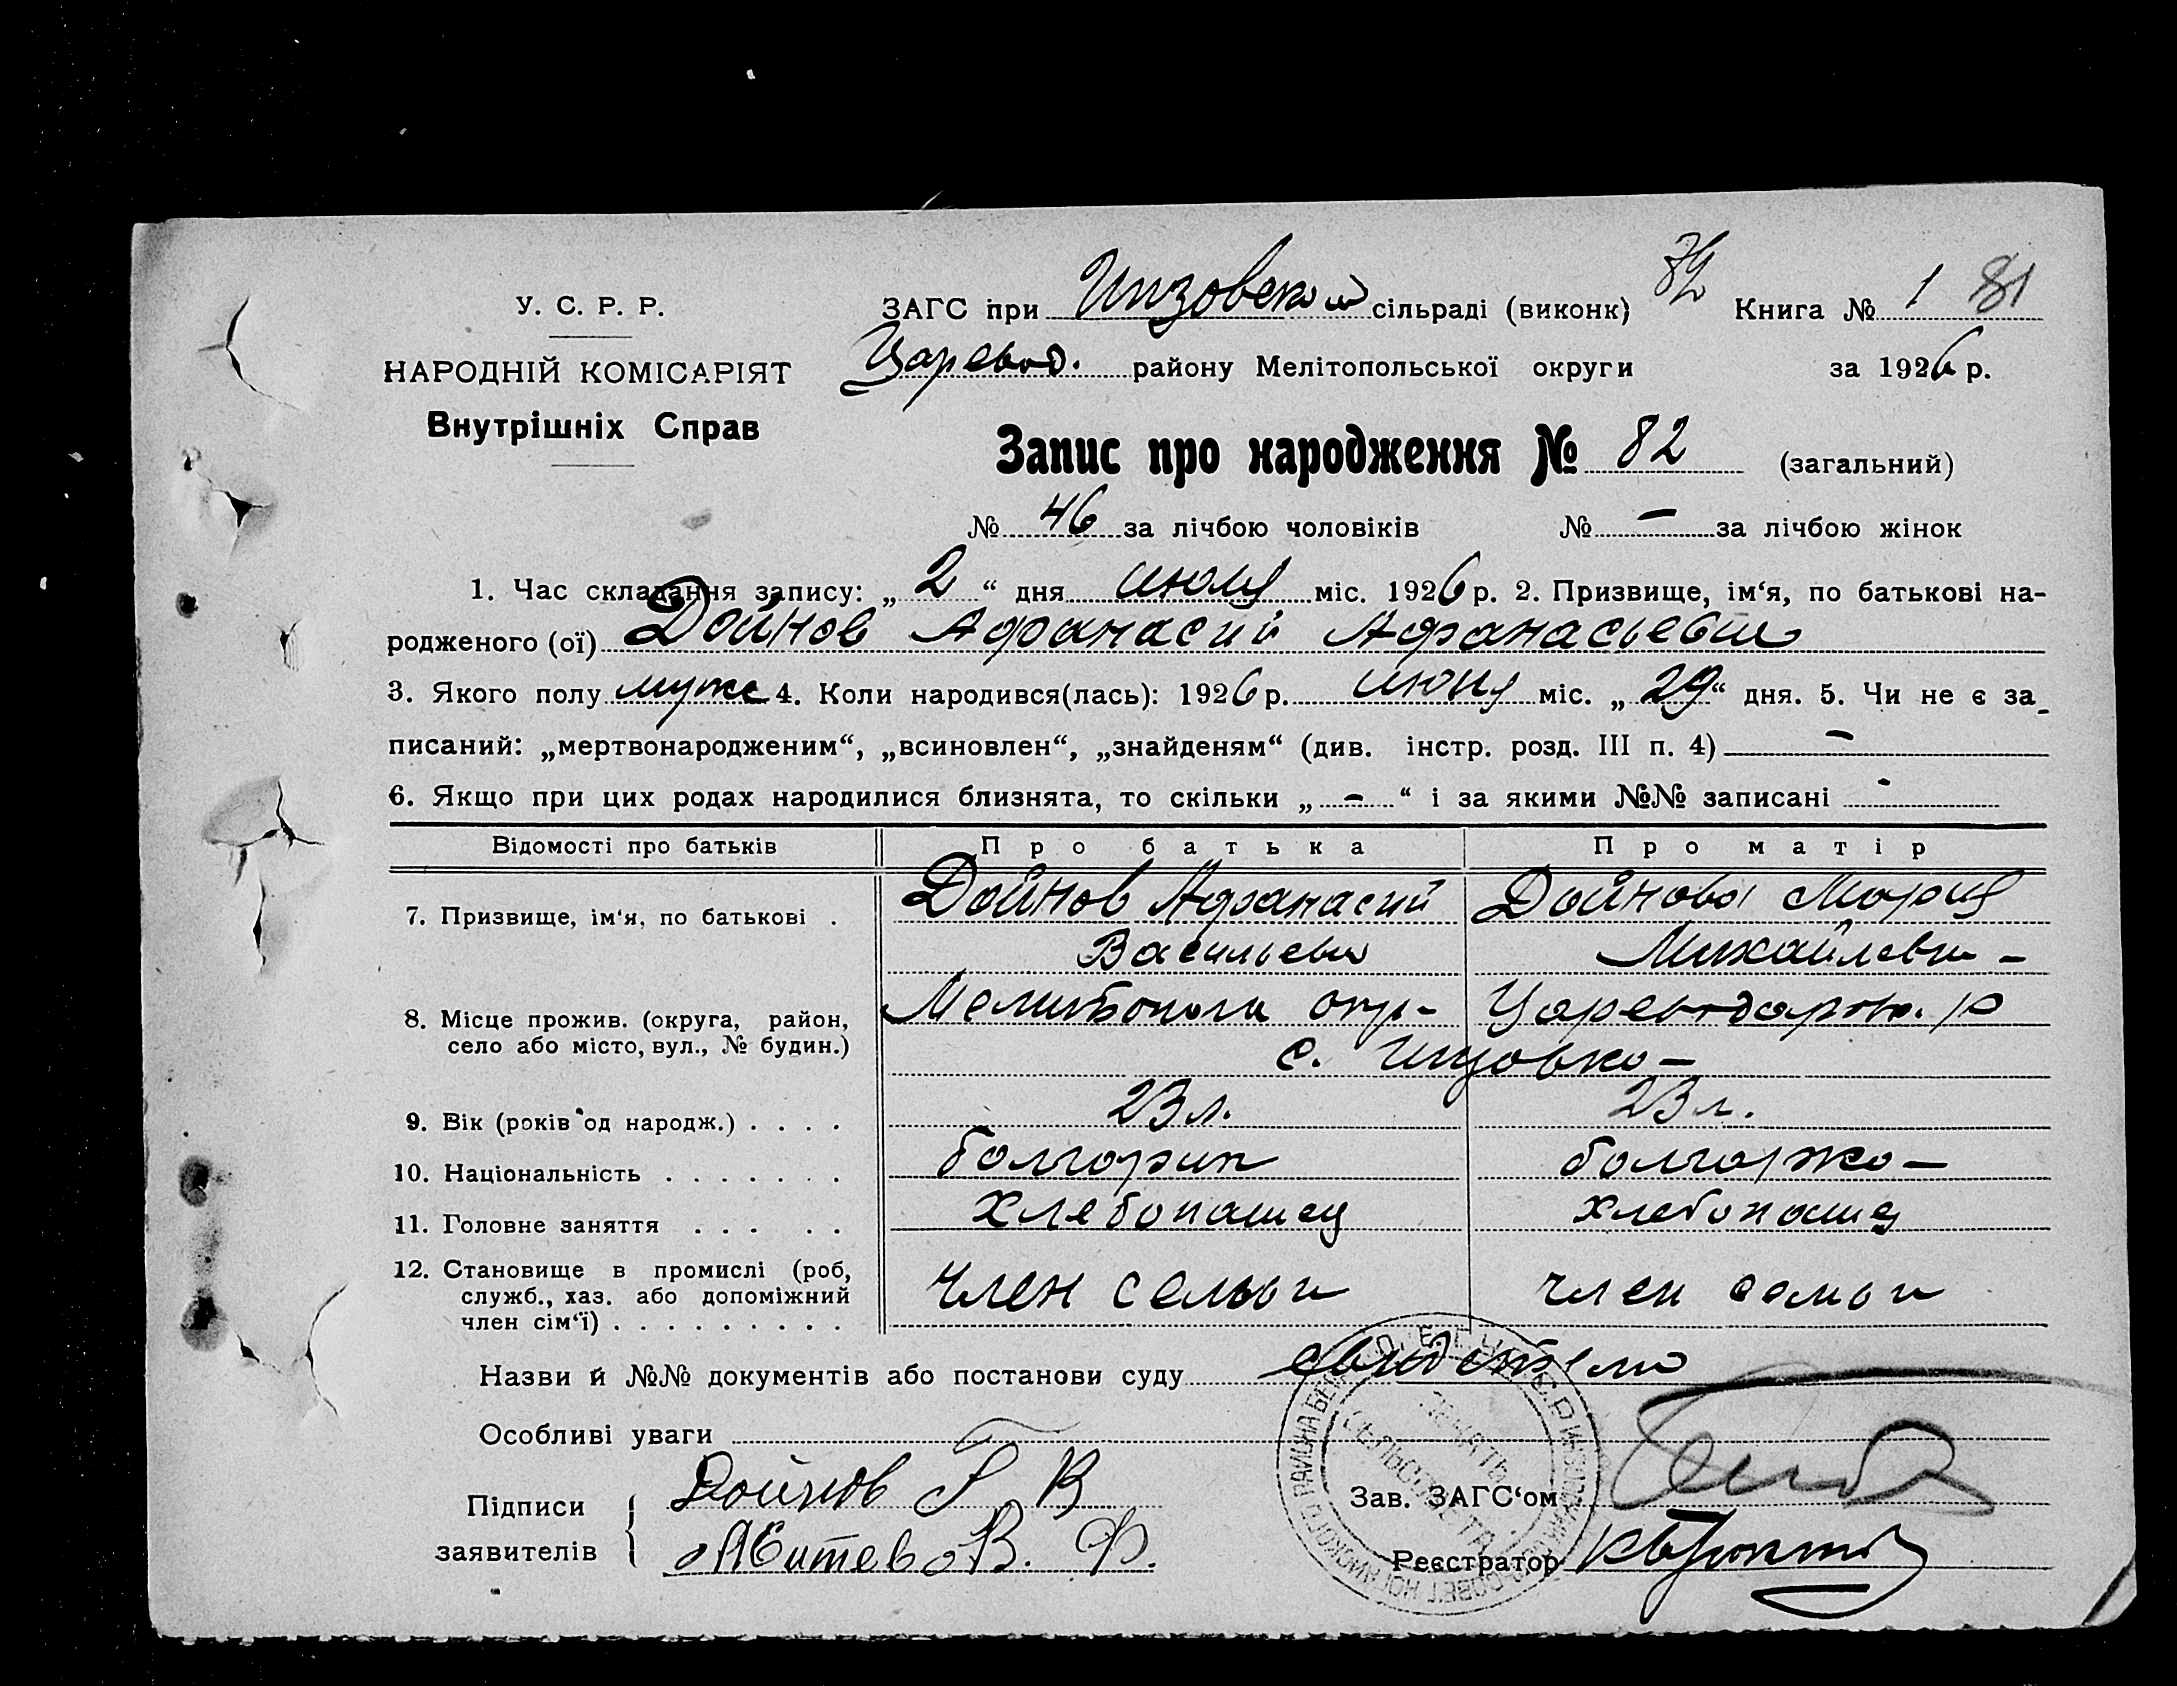 82 81
У. С. Р. Р. ЗАГС при Инзовском сільраді (виконк) Книга № 1
НАРОДНІЙ КОМІСАРІЯТ Царевод. району Мелітопольської округи за 1926 р.
Внутрішніх Справ
Запис про народження № 82 (загальний)
№ 46 за лічбою чоловіків № — за лічбою жінок
1. Час складання запису: „ 2 “ дня июля міс. 1926 р. 2. Призвище, ім‘я, по батькові на-
родженого (ої) Дойнов Афанасий Афанасьевич
3. Якого полу муже 4. Коли народився(лась): 1926 р. июня міс. „ 29 “ дня. 5. Чи не є за_
писаний: „мертвонародженим“, „всиновлен“, „знайденям“ (див. інстр. розд. III п. 4) —
6. Якщо при цих родах народилися близнята, то скільки „ – “ і за якими №№ записані -
Відомості про батьків Про батька Про матір
7. Призвище, ім‘я, по батькові . Дойнов Афанасий Дойнова Мария
Васильев Михайлов –
8. Місце прожив. (округа, район, Мелитополь окр- Цареводаров. р
село або місто, вул., № будин.) с. Инзовка –
9. Вік (років од народж.) . . . . 23 л. 23 л.
10. Національність . . . . . . . болгарин болгарка –
11. Головне заняття . . . . . хлебопашец хлебопашец
12. Становище в промислі (роб,
служб., хаз. або допоміжний член семьи член семьи
член сім‘ї) . . . . . . . . .
Назви й №№ документів або постанови суду свидетели
Особливі уваги
Підписи Дойнов Г В Зав. ЗАГС‘ом
заявителів В. Ф. Реєстратор
ПЕЧАТЬ
СЕЛЬСОВЕТА